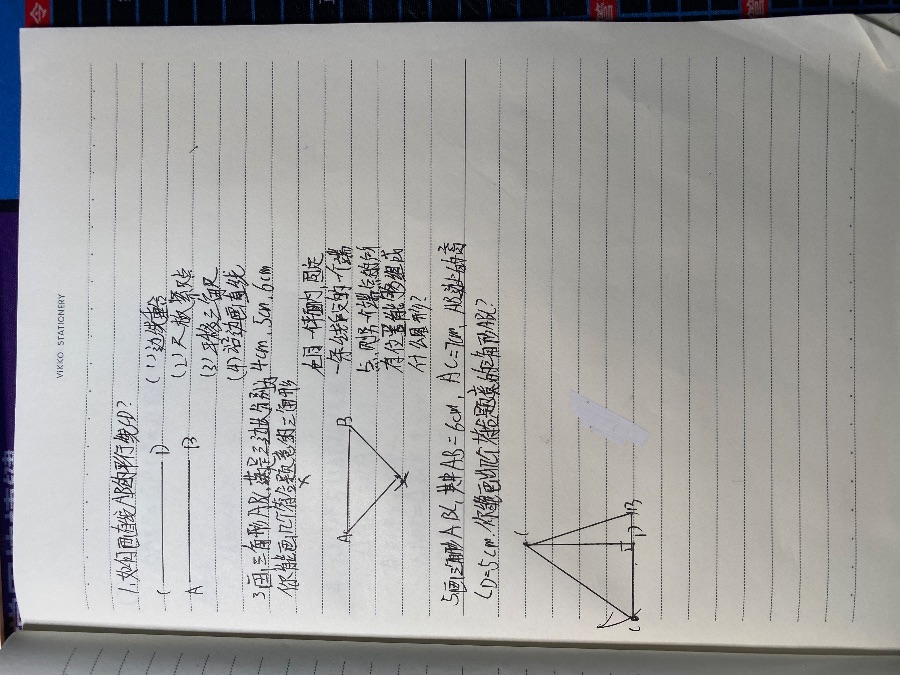 VIKKO STATIONERY
1.如何画直线AB的平行线CD?
(1)边线重合
(2)尺板紧贴
(3)平移三角尺
(4)沿边画直线
C D
A B
3画三角形ABC,满足三边长分别为4cm、5cm、6cm
你能画几个符合题意的三角形
A B
C
在同一平面内,固定
一条线段的一个端
点,则另一个端点的所
有位置能够组成
什么图形?
5画三角形ABC,其中AB=6cm,AC=7cm,AB边上的高
CD=5cm.你能画出几个符合题意的三角形ABC?
C
D B